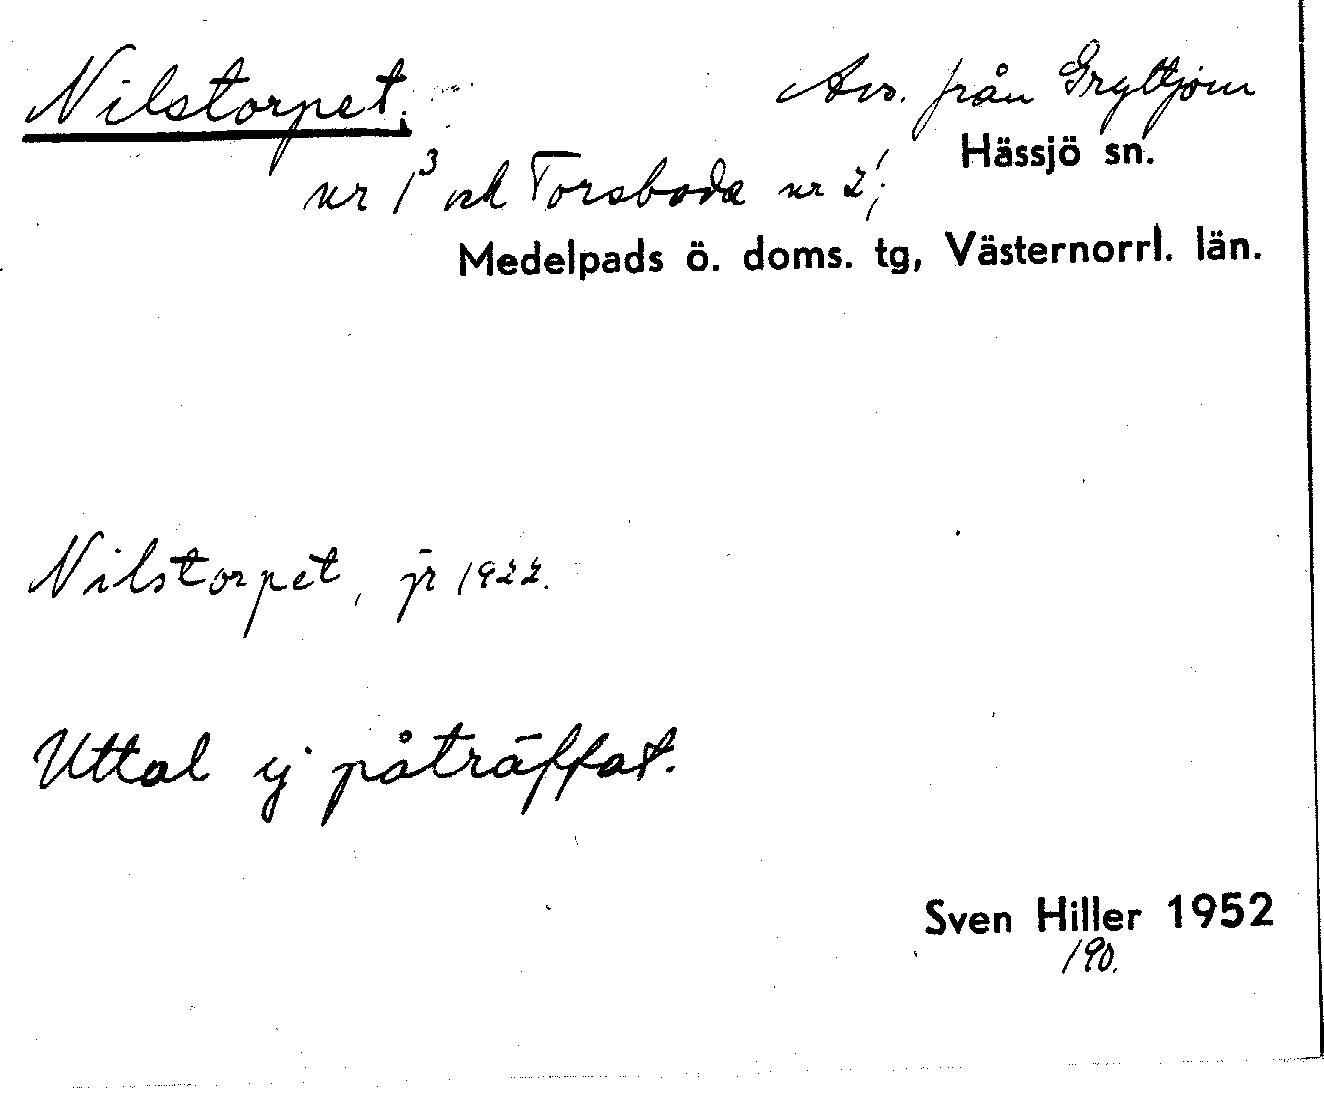 Nilstorpet, Avs. från Gryttjom
Hässjö sn.
nr 1³ och Torsboda nr 2¹;
Medelpads ö. doms. tg, Västernorrl. län.
Nilstorpet, jr 1922.
Uttal ej påträffat.
Sven Hiller 1952
190.